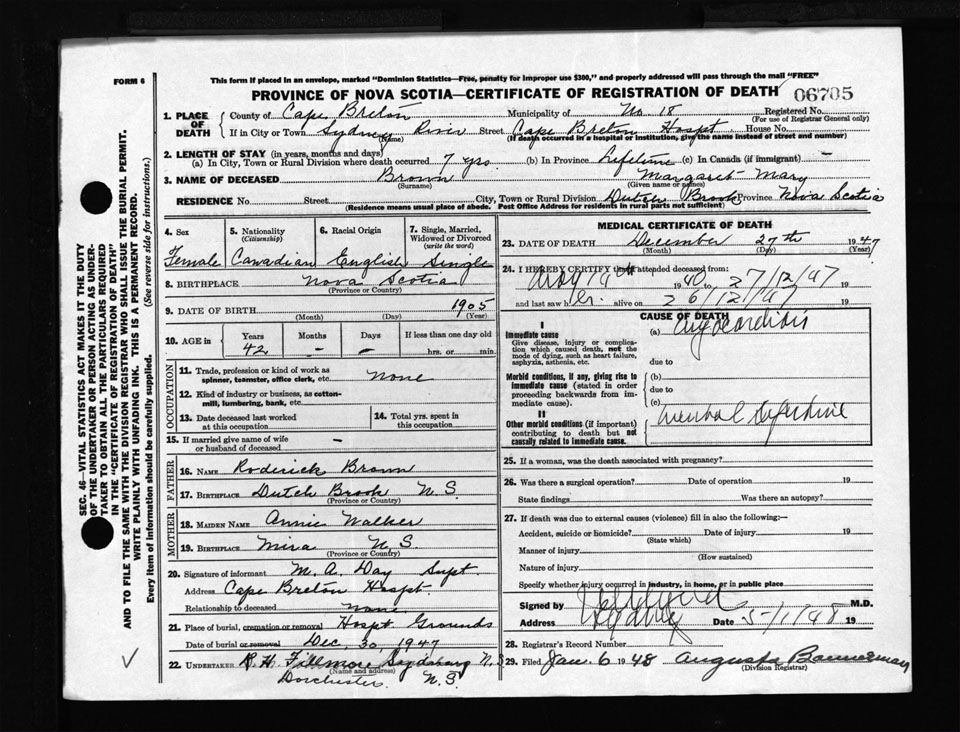 FORM 6
This form if placed in an envelope, marked "Dominion Statistics—Free, penalty for improper use $300," and properly addressed will pass through the mail "FREE"
PROVINCE OF NOVA SCOTIA—CERTIFICATE OF REGISTRATION OF DEATH 06705
SEC. 46—VITAL STATISTICS ACT MAKES IT THE DUTY
OF THE UNDERTAKER OR PERSON ACTING AS UNDER-
TAKER TO OBTAIN ALL THE PARTICULARS REQUIRED
IN THE "CERTIFICATE OF REGISTRATION OF DEATH"
AND TO FILE THE SAME WITH THE DIVISION REGISTRAR WHO SHALL ISSUE THE BURIAL PERMIT.
WRITE PLAINLY WITH UNFADING INK. THIS IS A PERMANENT RECORD.
Every item of information should be carefully supplied. (See reverse side for instructions.)
1. PLACE OF DEATH
County of Cape Breton Municipality of No. 18 Registered No.
(For use of Registrar General only)
If in City or Town Sydney River Street Cape Breton Hospt. House No.
(Name) (If death occurred in a hospital or institution, give the name instead of street and number)
2. LENGTH OF STAY (in years, months and days)
(a) In City, Town or Rural Division where death occurred 7 yrs (b) In Province Lifetime (c) In Canada (if immigrant) —
3. NAME OF DECEASED Brown Margaret Mary
(Surname) (Given name or names)
RESIDENCE No. Street City, Town or Rural Division Dutch Brook Province Nova Scotia
(Residence means usual place of abode. Post Office Address for residents in rural parts not sufficient)
4. Sex Female
5. Nationality (Citizenship) Canadian
6. Racial Origin English
7. Single, Married, Widowed or Divorced (write the word) Single
8. BIRTHPLACE Nova Scotia
(Province or Country)
9. DATE OF BIRTH 1905
(Month) (Day) (Year)
10. AGE in Years 42 Months — Days — If less than one day old hrs. or min.
OCCUPATION
11. Trade, profession or kind of work as spinner, teamster, office clerk, etc. none
12. Kind of industry or business, as cotton-mill, lumbering, bank, etc.
13. Date deceased last worked at this occupation
14. Total yrs. spent in this occupation
15. If married give name of wife or husband of deceased —
FATHER
16. NAME Roderick Brown
17. BIRTHPLACE Dutch Brook N.S.
(Province or Country)
MOTHER
18. MAIDEN NAME Annie Walker
19. BIRTHPLACE Mira N.S.
(Province or Country)
20. Signature of informant M. A. Day Supt.
Address Cape Breton Hospt.
Relationship to deceased none
21. Place of burial, cremation or removal Hospt Grounds
Date of burial or removal Dec. 30, 1947
22. UNDERTAKER R. H. Fillmore N.S
(Name and address)
Dorchester N.S.
MEDICAL CERTIFICATE OF DEATH
23. DATE OF DEATH December 27th 1947
(Month) (Day) (Year)
24. I HEREBY CERTIFY that I attended deceased from:
1940 to 27/12/47 19
and last saw her alive on 26/12/47 19
CAUSE OF DEATH
I
Immediate cause
Give disease, injury or complication which caused death, not the mode of dying, such as heart failure, asphyxia, asthenia, etc.
(a) Myocarditis
due to
Morbid conditions, if any, giving rise to immediate cause (stated in order proceeding backwards from immediate cause).
(b)
due to
(c)
II
Other morbid conditions (if important) contributing to death but not causally related to immediate cause.
Mental Defective
25. If a woman, was the death associated with pregnancy?
26. Was there a surgical operation? Date of operation 19
State findings Was there an autopsy?
27. If death was due to external causes (violence) fill in also the following:—
Accident, suicide or homicide? Date of injury 19
(State which)
Manner of injury
(How sustained)
Nature of injury
Specify whether injury occurred in industry, in home, or in public place
Signed by M.D.
Address Sydney Date 5-1/1/48 19
28. Registrar's Record Number
29. Filed Jan. 6 1948 Augusta Bannerman
(Division Registrar)